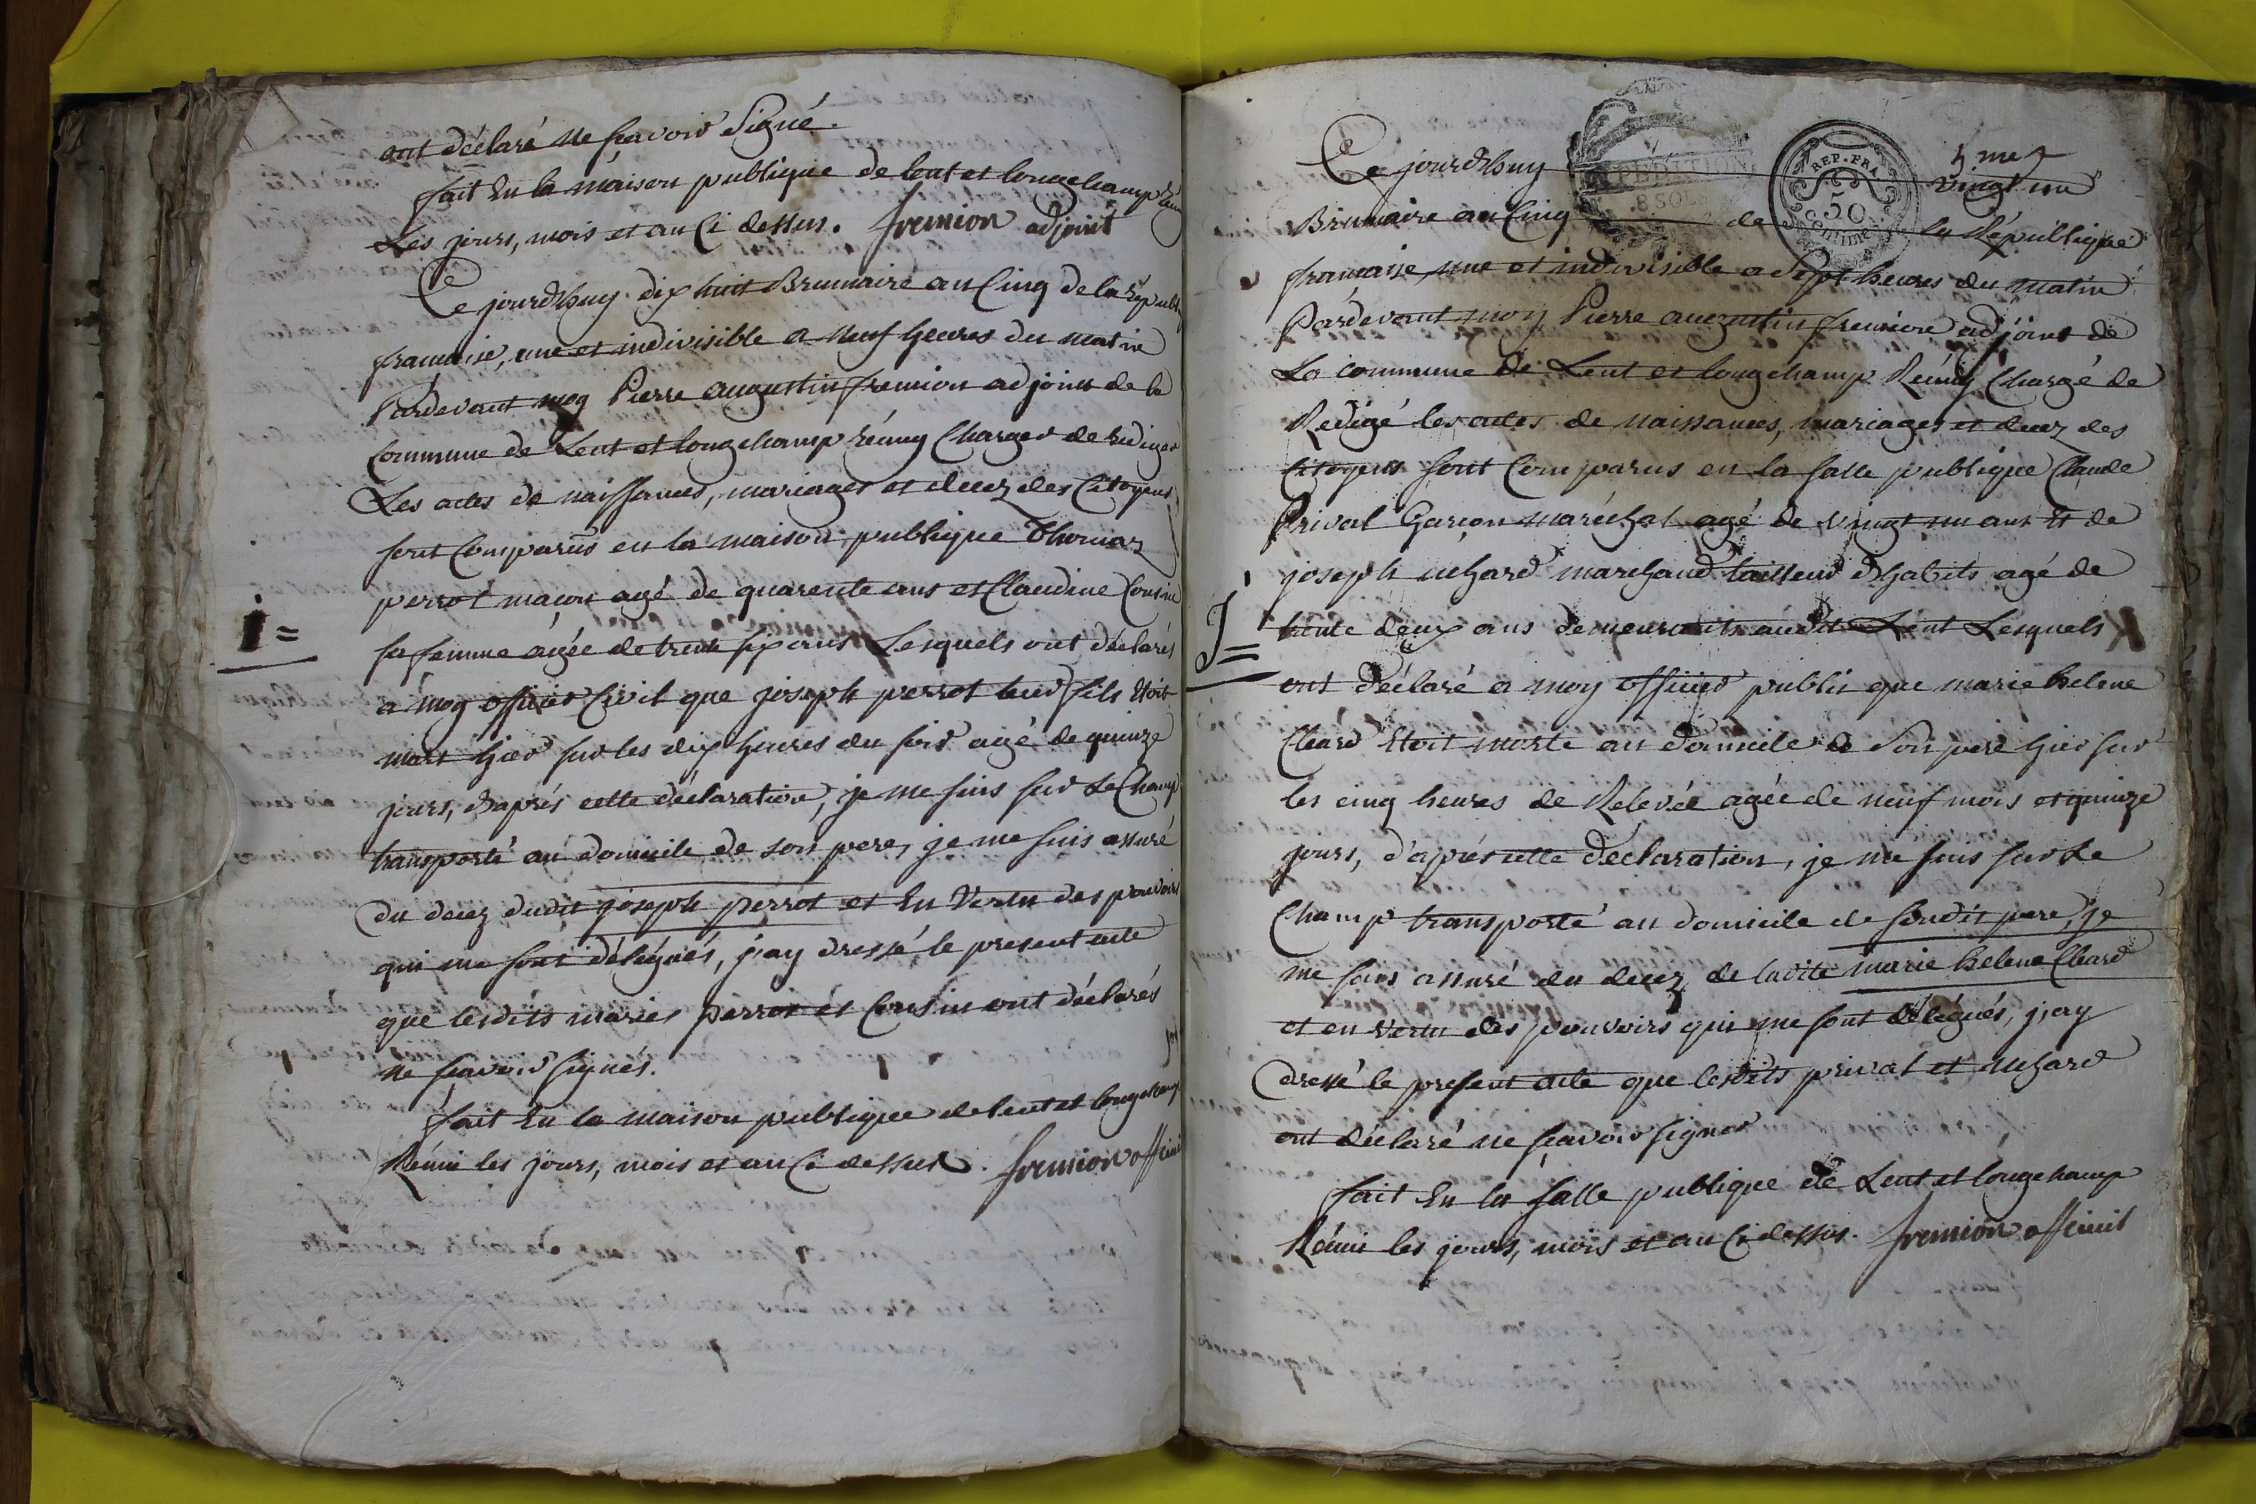 ont déclaré ne sçavoir Signé.
fait En la maison publique de lent et longchamp
Les jours, mois et an Ci dessus. fremion adjoint
Ce jourdhuy dix huit Brumaire an Cinq de la Républ
francaise, une et indivisible a neuf heures du matin
Pardevant moy Pierre augustin fremion adjoint de la
Commune de Lent et longchamp rémy Charger de rediger
Les actes de naissances, mariages et decez des Citoyens
sont Comparus en la maison publique Thomas
perrot maçon agé de quarente ans et Claudine Cousin
sa femme agée de trente six ans Lesquels ont déclarés
i=
a moy officier Civil que joseph perrot leur fils Etoit
mort hier sur les dix heures du soir agé de quinze
jours, d'aprés cette déclaration, je me suis sur le Champ
transporté au domicile de son pere, je me suis assuré
du decez dudit joseph perrot et En Vertu des pouvoirs
qui me sont délégués, j'ay dressé le present acte
que lesdits mariés perrot et Cousin ont déclarés
ne sçavoir signés.
fait En la maison publique de lent et longchamp
Rémi les jours, mois et an Ci dessus. fremion officier
5 me
REP. FRA.
50
Centime
8 SOLS
Ce jourdhuy vingt un
Brumaire an Cinq de la République
francaise, une et indivisible a Sept heures du matin
Pardevant moy Pierre augustin fremion adjoint de
La commune de Lent et longchamp Rémy Chargé de
Redigé les actes de naissances, mariages et decez des
Citoyens sont Comparus en la salle publique Claude
Privat Garçon maréchal agé de vingt un ans Et de
joseph nizard marchand tailleur d'habits agé de
trente deux ans demeurants audit Lent Lesquels
J=
ont déclaré a moy officier public que marie helene
Cleard Etoit morte au domicile de Son pere hier sur
les cinq heures de Relevée agée de neuf mois et quinze
jours, d'aprés cette déclaration, je me suis sur Le
Champ transporté au domicile de sondit pere, je
me suis assuré du decez de ladite marie helene Cleard
et en vertu des pouvoirs qui me sont délégués, j'ay
dressé le present acte que lesdits privat et nizard
ont déclaré ne sçavoir signer
fait En la salle publique de Lent et longchamp
Rémi les jours, mois et an Ci dessus. fremion officier